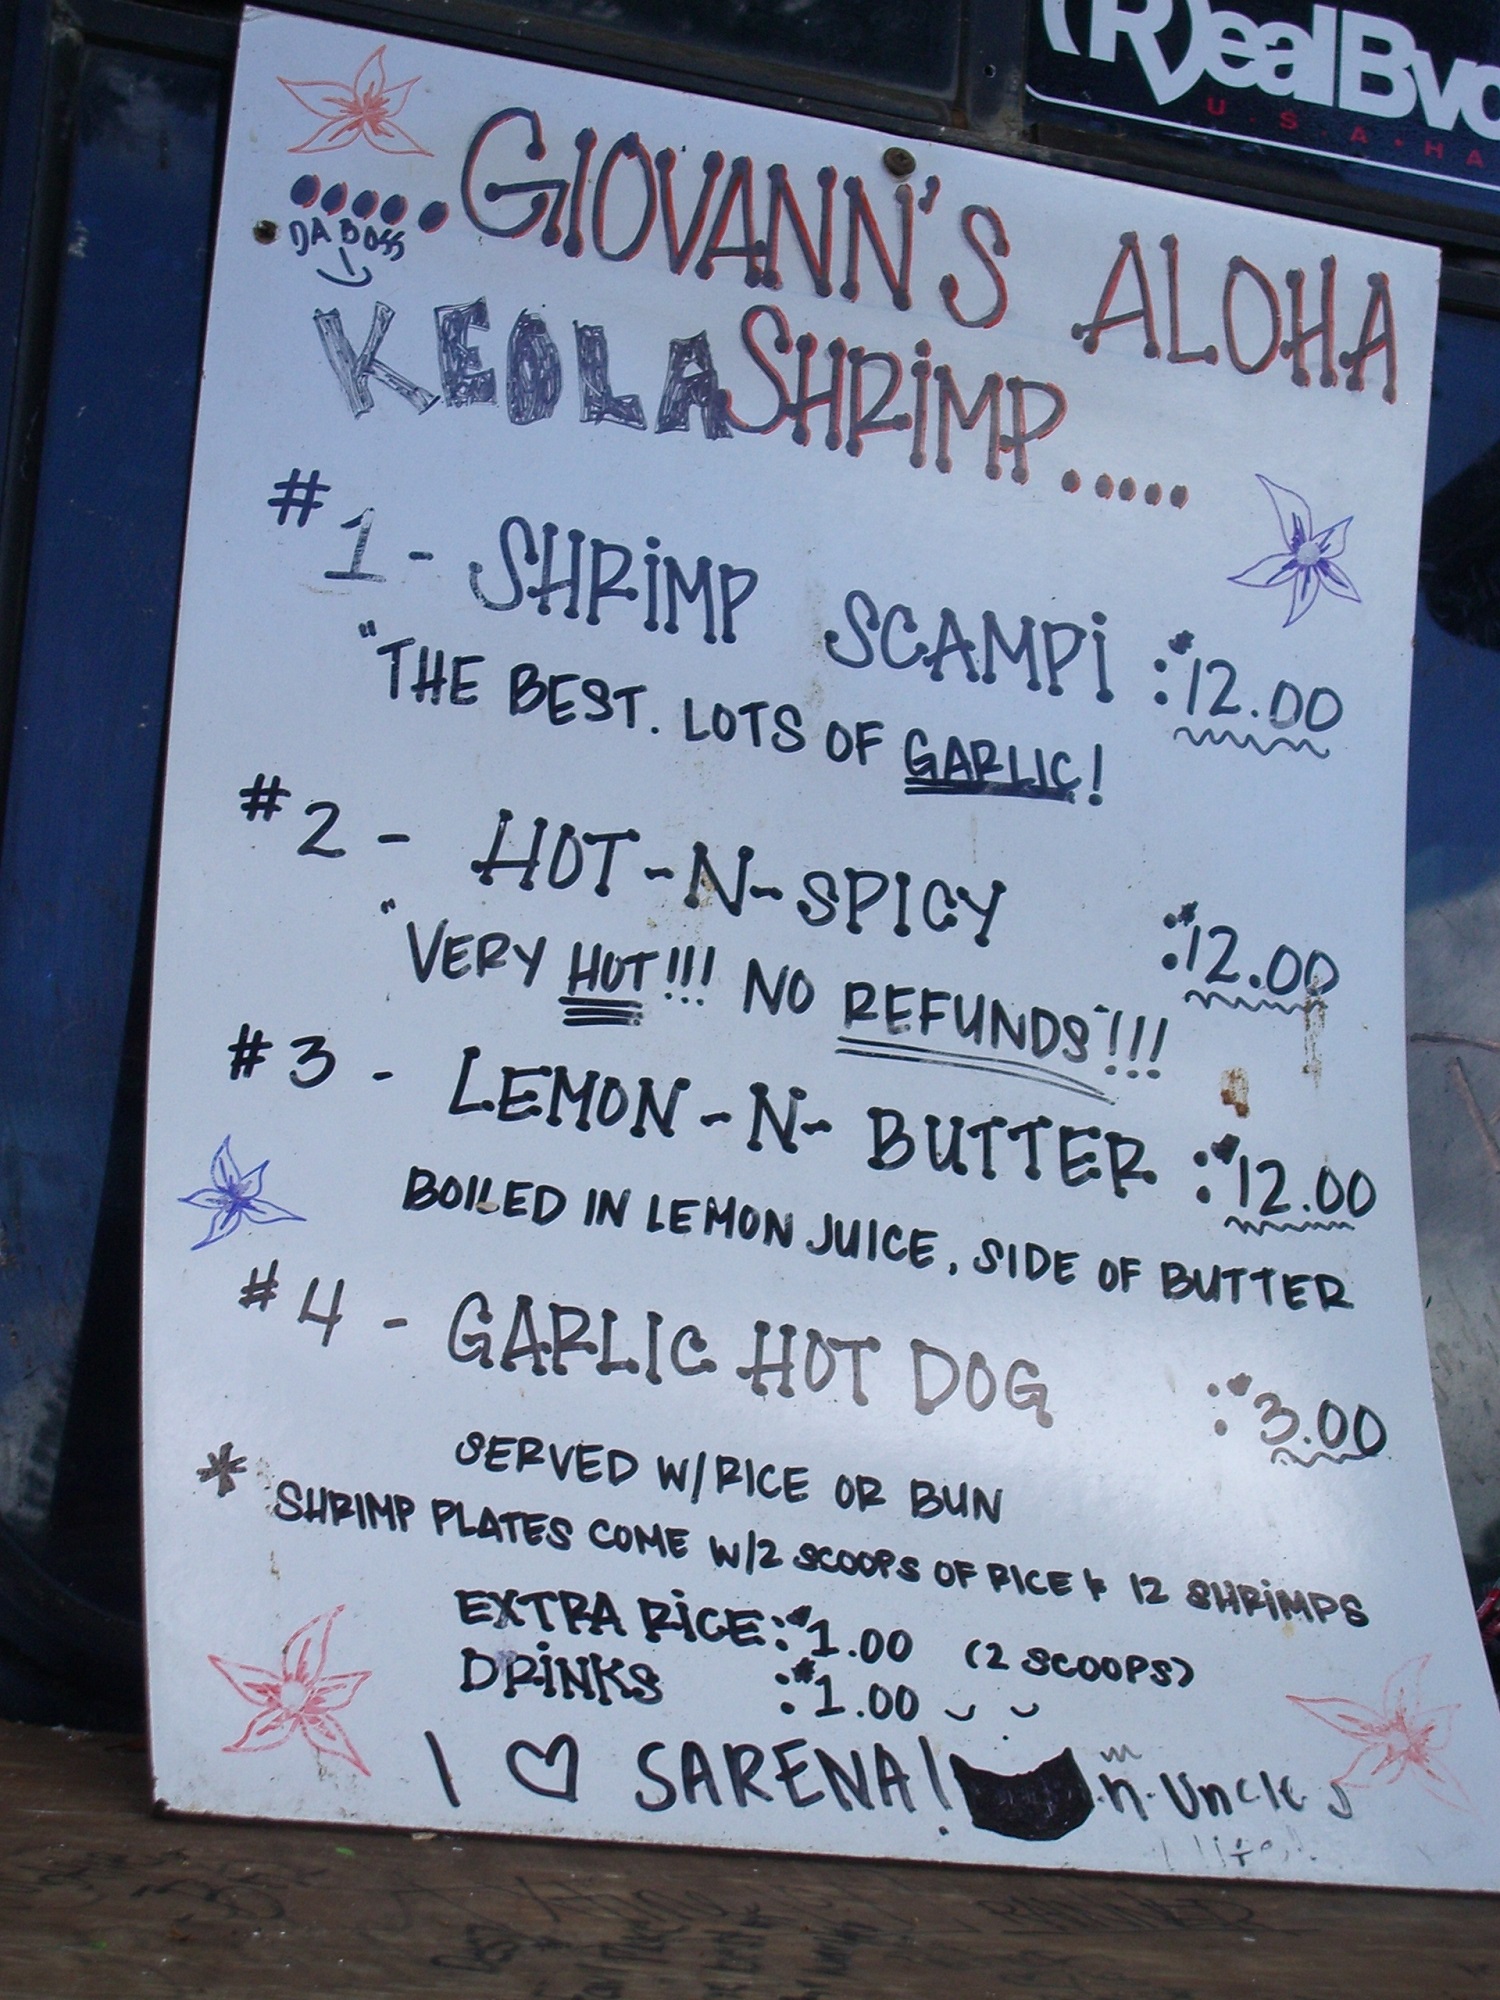 (R)ealBvo
U.S.A.HA
.....GIOVANN'S ALOHA
DA BOSS
KEOLA SHRIMP.....
#1 - SHRIMP SCAMPI :$12.00
"THE BEST. LOTS OF GARLIC!
#2 - HOT-N-SPICY :$12.00
"VERY HOT!!! NO REFUNDS"!!!
#3 - LEMON-N-BUTTER :$12.00
BOILED IN LEMON JUICE, SIDE OF BUTTER
#4 - GARLIC HOT DOG :$3.00
SERVED W/RICE OR BUN
* SHRIMP PLATES COME W/2 SCOOPS OF RICE & 12 SHRIMPS
EXTRA RICE:$1.00 (2 SCOOPS)
DRINKS :$1.00
I ♡ SARENA! n. Uncle J